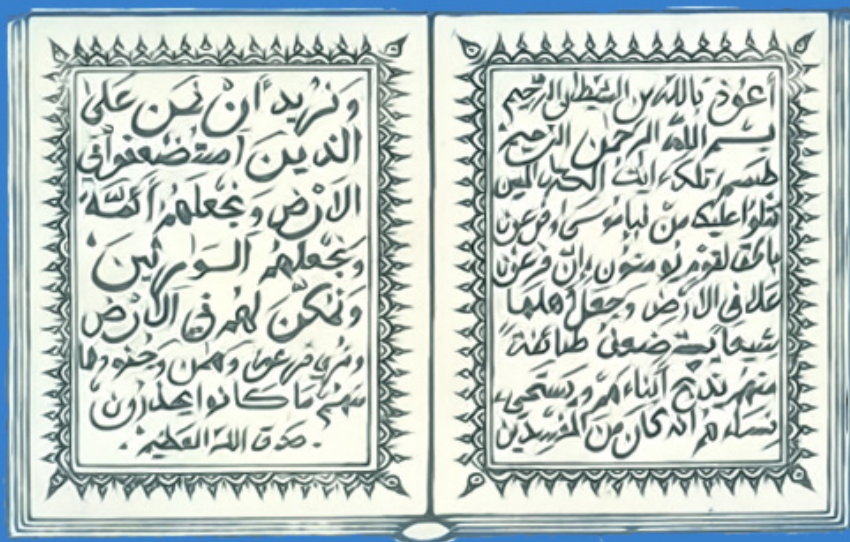 أعوذ بالله من الشيطن الرجيم
بسم الله الرحمن الرحيم
طسم تلك ءايت الكتب المبين
نتلوا عليك من نبإ موسى وفرعون
بالحق لقوم يؤمنون إن فرعون
علا في الأرض وجعل أهلها
شيعا يستضعف طائفة
منهم يذبح أبناءهم ويستحيي
نساءهم انه كان من المفسدين
ونريد أن نمن على
الذين استضعفوا في
الارض ونجعلهم أئمة
ونجعلهم الورثين
ونمكن لهم في الأرض
ونري فرعون وهمن وجنودهما
منهم ما كانوا يحذرون
صدق الله العظيم